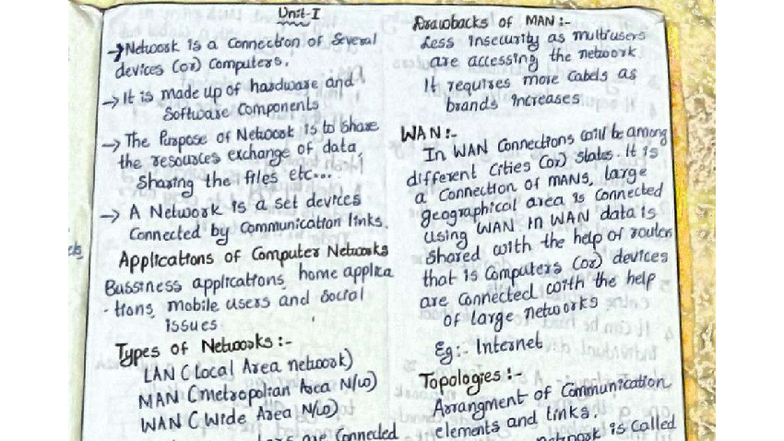 Unit-I
→ Network is a Connection of Several
devices (or) Computers.
→ It is made up of hardware and
Software Components
→ The Purpose of Network is to Share
the resources exchange of data,
Sharing the files etc...
→ A Network is a set devices
Connected by Communication links.
Applications of Computer Networks
Bussiness applications, home applica
-tions, mobile users and Social
issues
Types of Networks :-
LAN (Local Area network)
MAN (metropolian Area N/w)
WAN (Wide Area N/w)
are Connected
Drawbacks of MAN :-
Less insecurity as multiusers
are accessing the network
It requires more Cabels as
brands increases
WAN :-
In WAN Connections will be among
different Cities (or) states. It is
a Connection of MANS, large
geographical area is Connected
using WAN in WAN data is
Shared with the help of router
that is Computers (or) devices
are connected with the help
of large networks
Eg :- Internet
Topologies :-
Arrangment of Communication
elements and links.
network is called